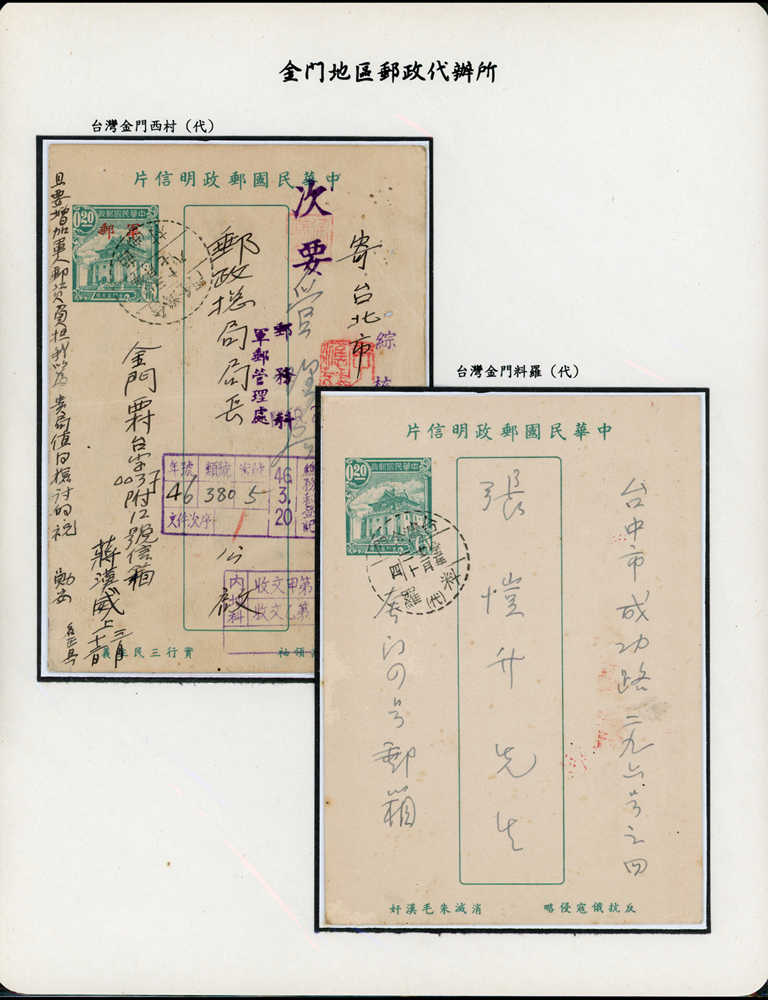 金門地區郵政代辦所
台灣金門西村（代）
中華民國郵政明信片
中華民國郵政
0.20
軍郵
次要
寄台北市
郵政總局局長
公啟
郵務科
軍郵管理處
綜核
年號 類號 案號
46 380 5
文件次序
46.3.20
總務科登記
內地科
收文甲第
收文乙第
金門西村台字
附12號信箱
蔣漢威上
三月
且要增加軍人郵資負担我以為貴局值的檢討的祝
勛安
實行三民主義
領袖
台灣金門料羅（代）
中華民國郵政明信片
中華民國郵政
0.20
料羅
（代）
台中市成功路二九六号之四
張愷升先生
号郵箱
反抗俄寇侵略
消滅朱毛漢奸